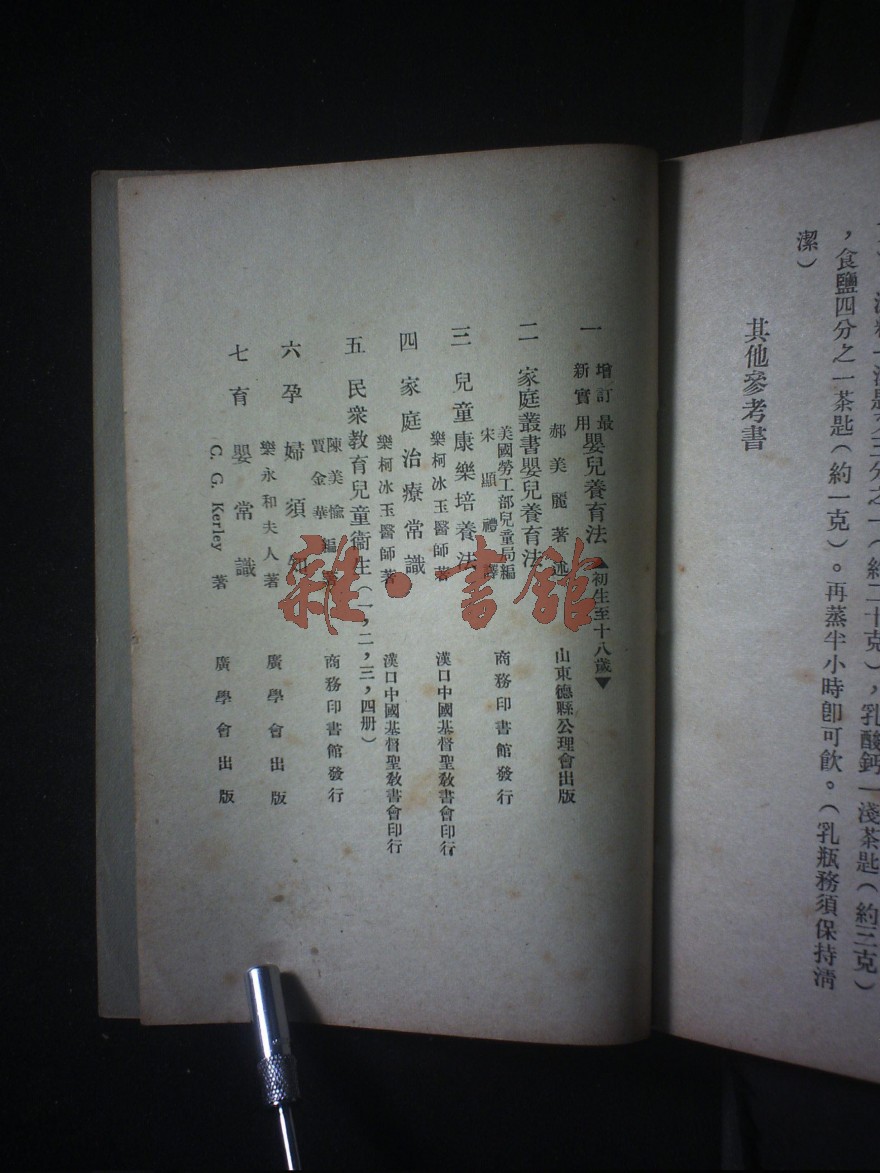 食鹽四分之一茶匙(約一克)。再蒸半小時卽可飲。(乳瓶務須保持淸
潔)
其他參考書
一 增訂最新實用嬰兒養育法 ▲初生至十八歲▼
郝美麗著述 山東德縣公理會出版
二 家庭叢書嬰兒養育法
美國勞工部兒童局編
宋顯禮譯 商務印書館發行
三 兒童康樂培養法
樂柯冰玉醫師著 漢口中國基督聖敎書會印行
四 家庭治療常識
樂柯冰玉醫師著 漢口中國基督聖敎書會印行
五 民衆敎育兒童衞生(一,二,三,四册)
陳美愉
賈金華 編著 商務印書館發行
六 孕婦須知
樂永和夫人著 廣學會出版
七 育嬰常識
C. G. Kerley 著 廣學會出版
雜·書館